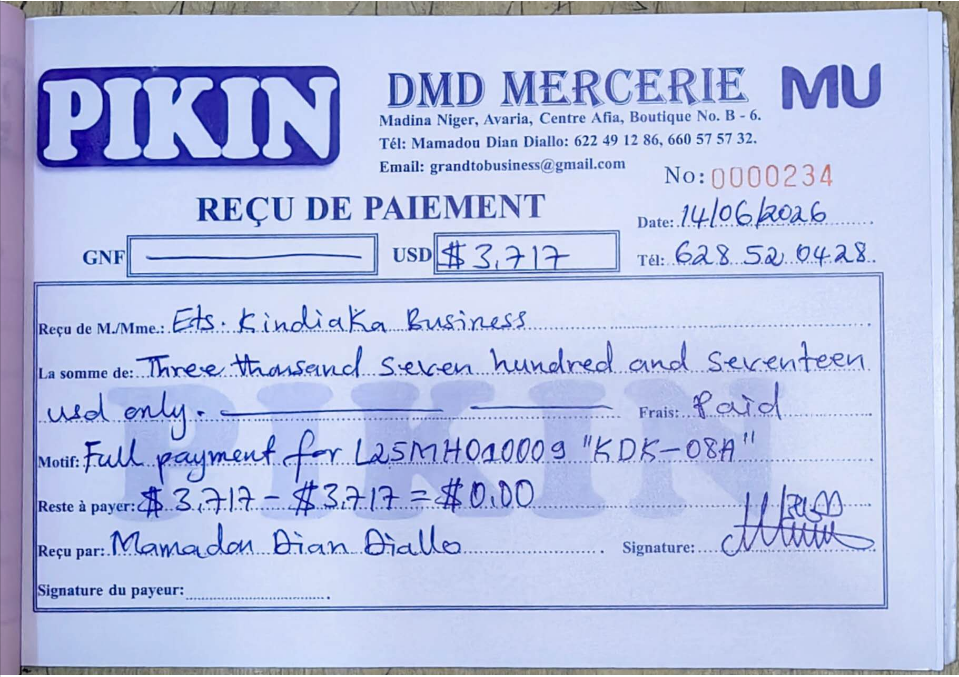 PIKIN
DMD MERCERIE
MU
Madina Niger, Avaria, Centre Afia, Boutique No. B - 6.
Tél: Mamadou Dian Diallo: 622 49 12 86, 660 57 57 32.
Email: grandtobusiness@gmail.com
No: 0000234
REÇU DE PAIEMENT
Date: 14/06/2026
GNF
USD $3,717
Tél: 628 52 04 28
Reçu de M./Mme.: Ets. Kindiaka Business
La somme de: Three thousand seven hundred and seventeen
usd only. Frais: Paid
Motif: Full payment for L25MH010009 "KDK-08A"
Reste à payer: $3,717 - $3,717 = $0.00
Reçu par: Mamadou Dian Diallo Signature:
Signature du payeur:
PIKIN